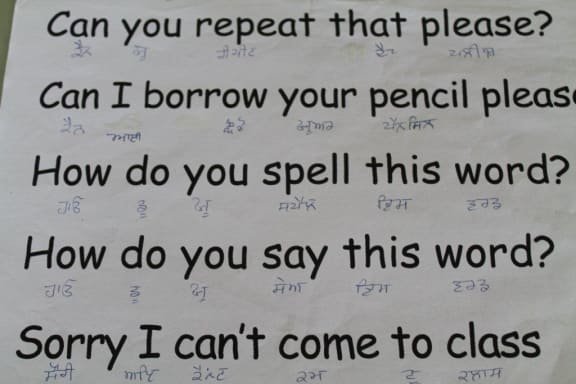 Can you repeat that please?
ਕੈਨ ਯੂ ਰੀਪੀਟ ਦੈਟ ਪਲੀਜ਼
Can I borrow your pencil pleas
ਕੈਨ ਆਈ ਯੂਅਰ ਪੈਨਸਿਲ
How do you spell this word?
ਹਾਓ ਡੂ ਯੂ ਸਪੈਲ ਦਿਸ ਵਰਡ
How do you say this word?
ਹਾਓ ਡੂ ਯੂ ਸੇਅ ਦਿਸ ਵਰਡ
Sorry I can't come to class
ਸੌਰੀ ਆਇ ਕੈਂਟ ਕਮ ਟੂ ਕਲਾਸ